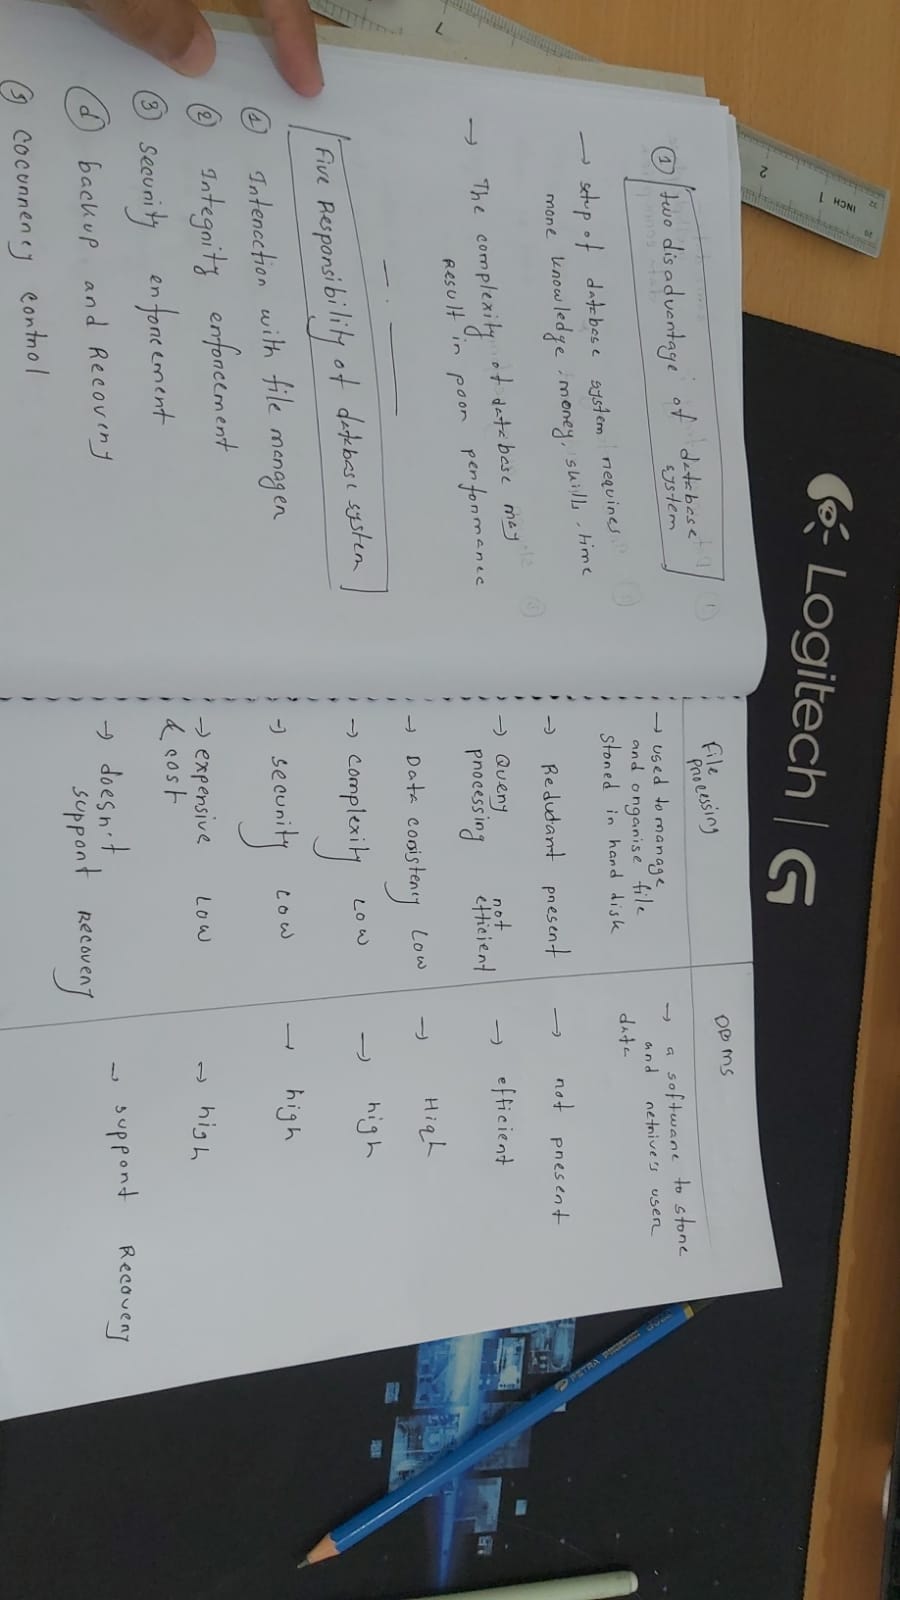 INCH 1
2
7
Logitech G
① two disadvantage of database
system
→ setup of database system requires
more knowledge, money, skills, time
→ The complexity of database may
Result in poor performance
Five Responsibility of database system
① Interaction with file manager
② Integrity enforcement
③ security enforcement
④ backup and Recovery
⑤ cocurrency control
File
Processing
DBMS
→ used to manage
and organise file
stored in hard disk
→ a software to store
and retrive's user
data
→ Redutant present
→ not present
→ Query not
processing efficient
→ efficient
→ Data consistency Low
→ High
→ complexity Low
→ high
→ security Low
→ high
→ expensive Low
& cost
→ high
→ doesn't
support recovery
→ support Recovery